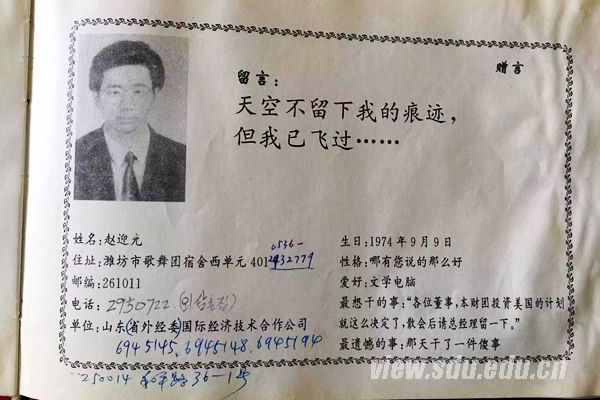 赠言
留言:
天空不留下我的痕迹,
但我已飞过……
姓名:赵迎光
0536-
住址:潍坊市歌舞团宿舍西单元 401 2932779
邮编:261011
电话:2950722
单位:山东(省外经委)国际经济技术合作公司
6945145. 6945148. 6945194
250014 和平路 36-1号
生日:1974 年 9 月 9 日
性格:哪有您说的那么好
爱好:文学电脑
最想干的事:“各位董事,本财团投资美国的计划
就这么决定了,散会后请总经理留一下。”
最遗憾的事:那天干了一件傻事
view.sdu.edu.cn